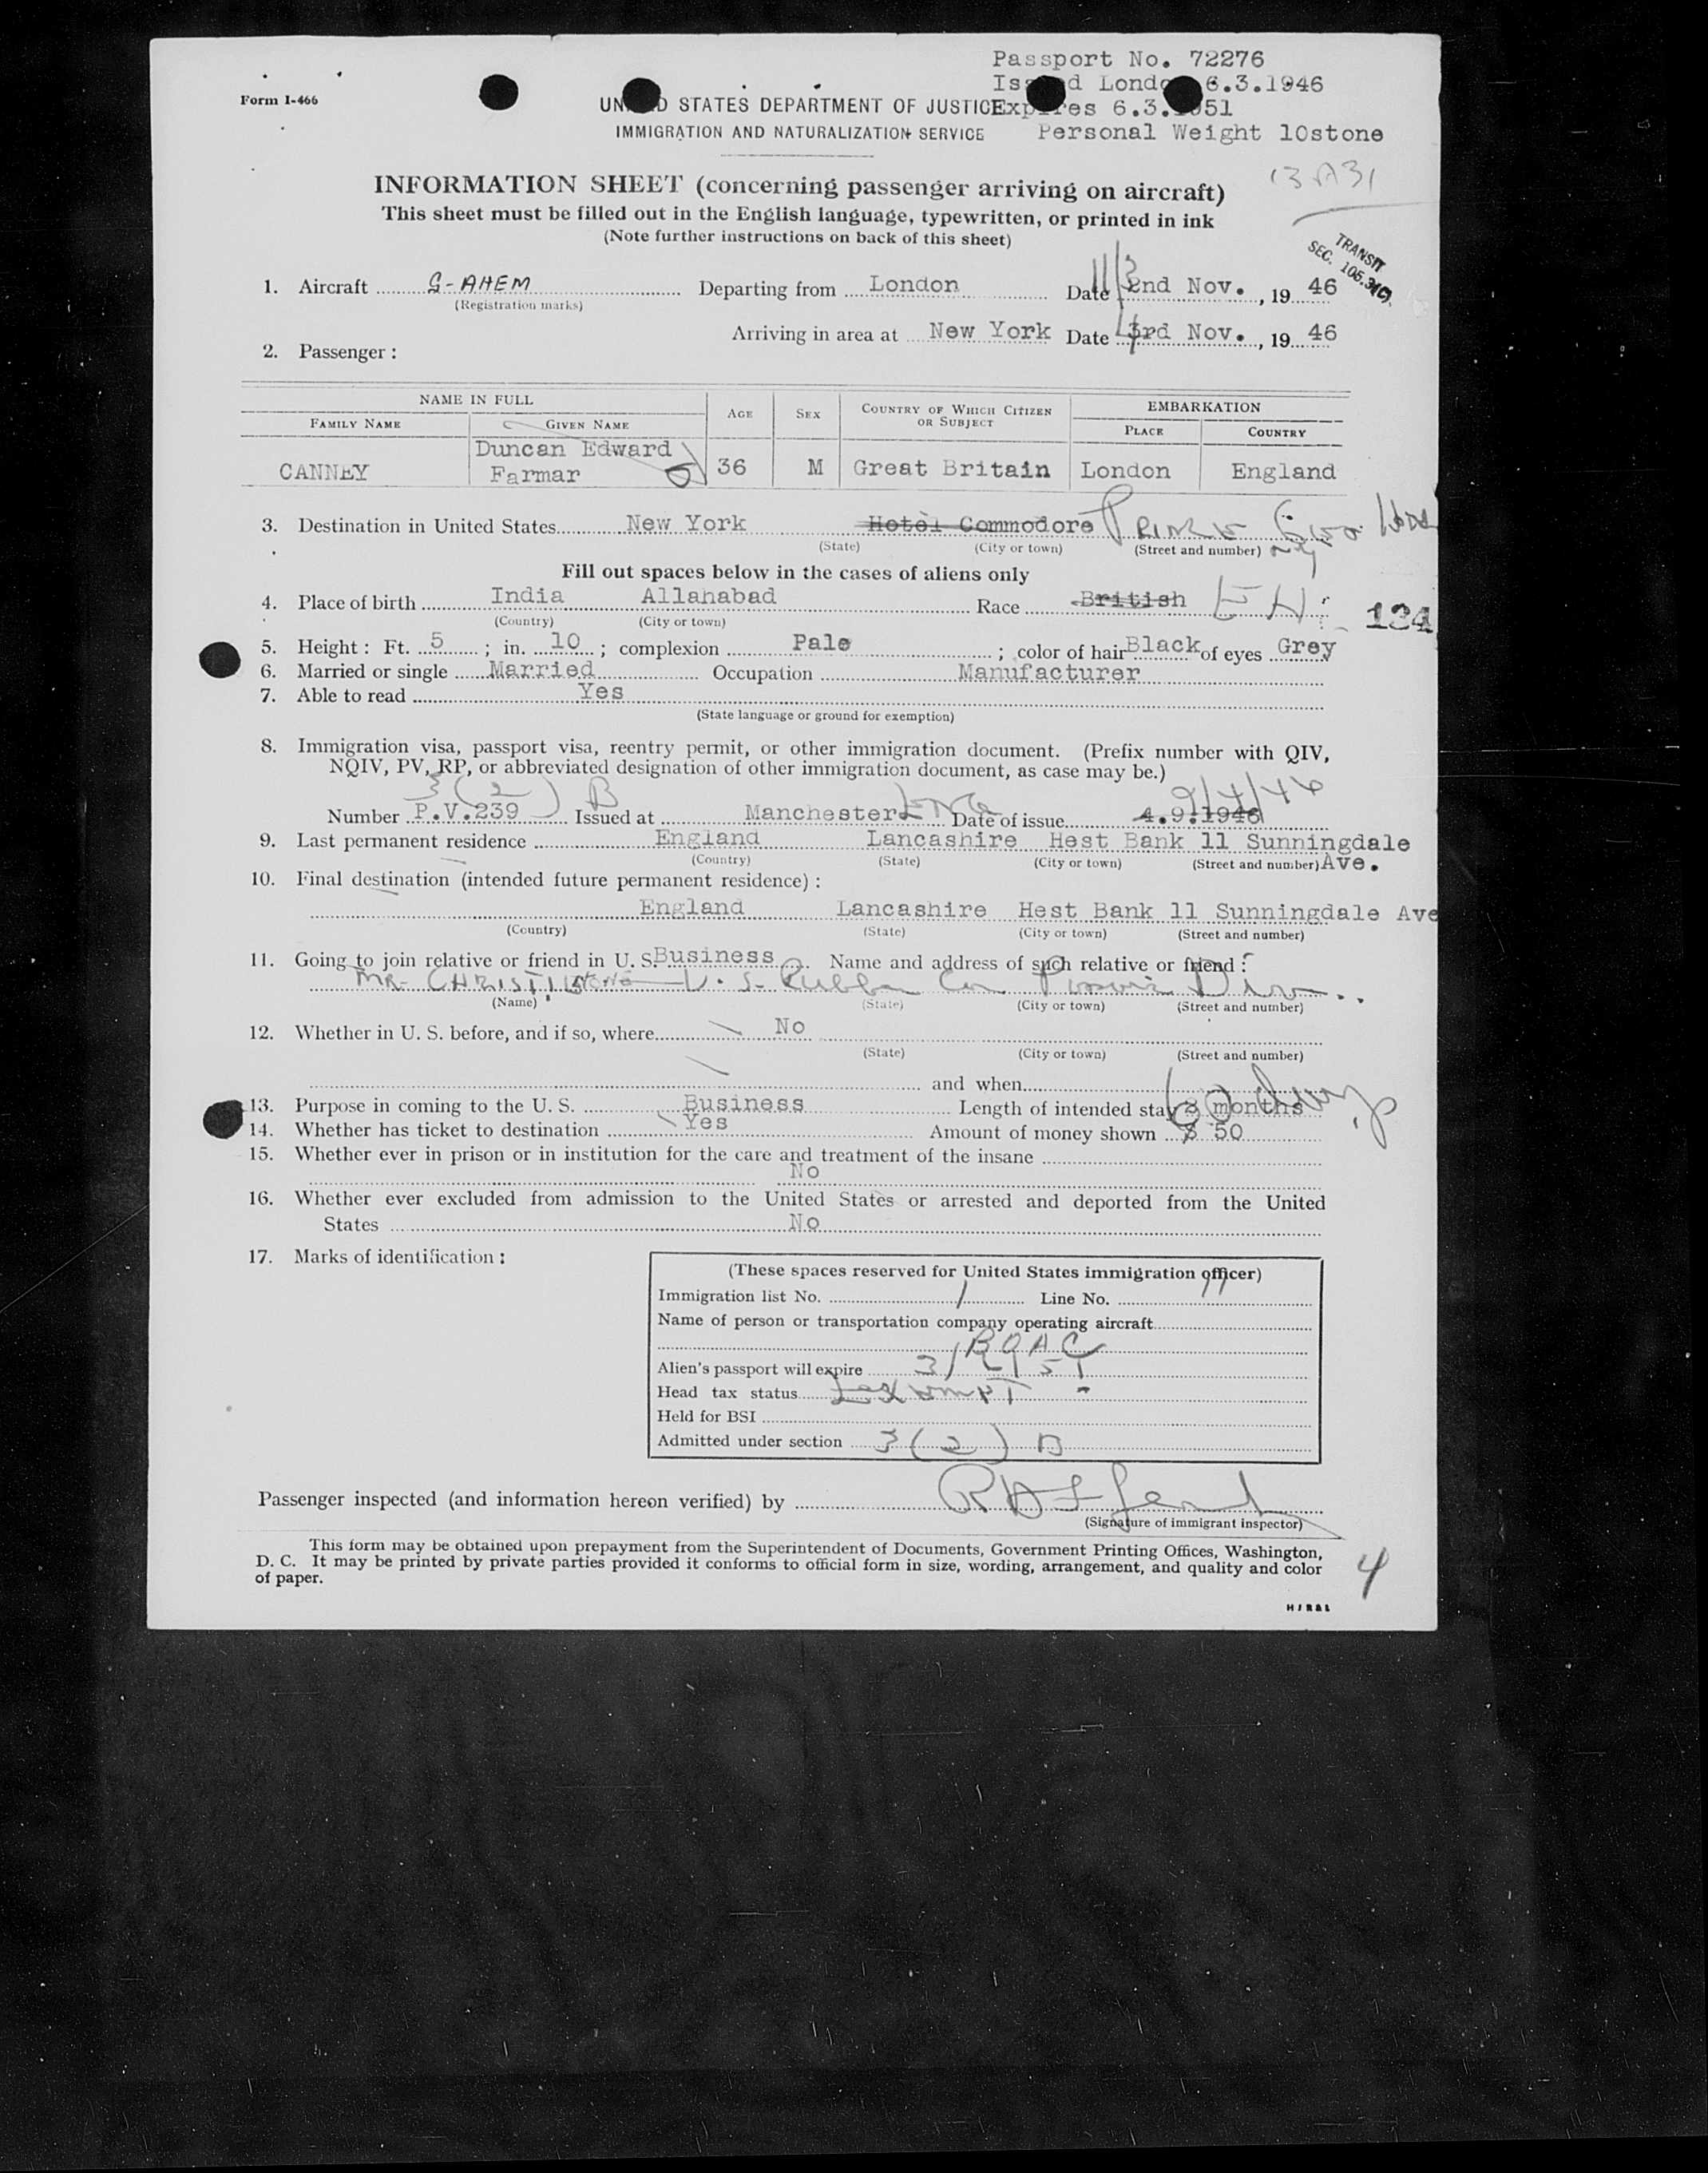 Passport No. 72276
Form I-466
Issued London 6.3.1946
UNITED STATES DEPARTMENT OF JUSTICE Expires 6.3.1951
IMMIGRATION AND NATURALIZATION SERVICE Personal Weight 10stone
INFORMATION SHEET (concerning passenger arriving on aircraft)
This sheet must be filled out in the English language, typewritten, or printed in ink
(Note further instructions on back of this sheet)
TRANSIT
SEC. 105.3(C)
1. Aircraft G-AHEM Departing from London Date 2nd Nov. , 19 46
(Registration marks)
Arriving in area at New York Date 3rd Nov. , 19 46
2. Passenger :
NAME IN FULL AGE SEX COUNTRY OF WHICH CITIZEN OR SUBJECT EMBARKATION
FAMILY NAME GIVEN NAME PLACE COUNTRY
Duncan Edward
CANNEY Farmar 36 M Great Britain London England
3. Destination in United States New York Hotel Commodore
(State) (City or town) (Street and number)
Fill out spaces below in the cases of aliens only
4. Place of birth India Allahabad Race British
(Country) (City or town)
134
5. Height : Ft. 5 ; in. 10 ; complexion Pale ; color of hair Black of eyes Grey
6. Married or single Married Occupation Manufacturer
7. Able to read Yes
(State language or ground for exemption)
8. Immigration visa, passport visa, reentry permit, or other immigration document. (Prefix number with QIV,
NQIV, PV, RP, or abbreviated designation of other immigration document, as case may be.)
3 (2) B 9/4/46
Number P.V.239 Issued at Manchester Date of issue 4.9.1946
9. Last permanent residence England Lancashire Hest Bank 11 Sunningdale
(Country) (State) (City or town) (Street and number) Ave.
10. Final destination (intended future permanent residence) :
England Lancashire Hest Bank 11 Sunningdale Ave
(Country) (State) (City or town) (Street and number)
11. Going to join relative or friend in U. S. Business Name and address of such relative or friend :
MR. U. S. Rubber
(Name) (State) (City or town) (Street and number)
12. Whether in U. S. before, and if so, where No
(State) (City or town) (Street and number)
and when
13. Purpose in coming to the U. S. Business Length of intended stay 2 months
14. Whether has ticket to destination Yes Amount of money shown $ 50
15. Whether ever in prison or in institution for the care and treatment of the insane
No
16. Whether ever excluded from admission to the United States or arrested and deported from the United
States No
17. Marks of identification :
(These spaces reserved for United States immigration officer)
Immigration list No. 1 Line No. 11
Name of person or transportation company operating aircraft
BOAC
Alien's passport will expire
Head tax status Exempt
Held for BSI
Admitted under section 3 (2) B
Passenger inspected (and information hereon verified) by
(Signature of immigrant inspector)
This form may be obtained upon prepayment from the Superintendent of Documents, Government Printing Offices, Washington,
D. C. It may be printed by private parties provided it conforms to official form in size, wording, arrangement, and quality and color
of paper.
4